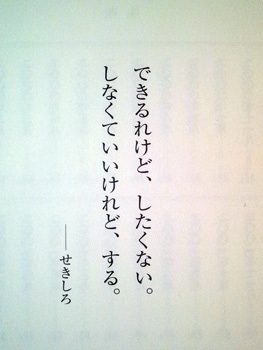 できるれけど、したくない。
しなくていいけれど、する。
——せきしろ